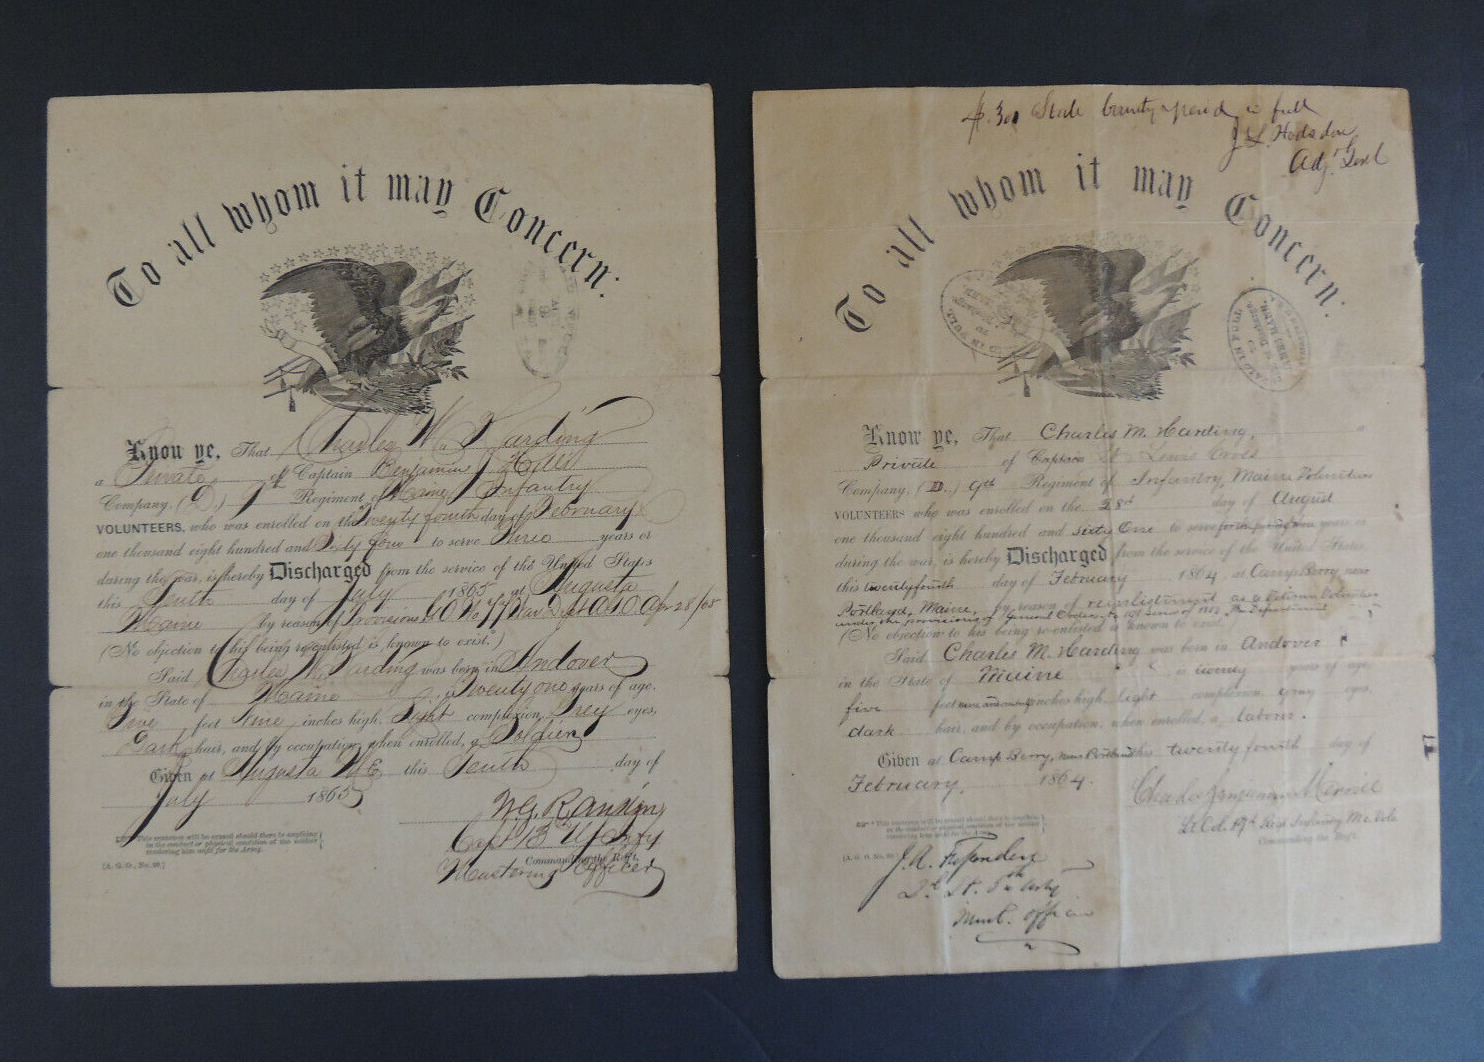 To all whom it may Concern:
Know ye, That Charles M. Harding
a Private of Captain Benjamin J Hill
Company, (D,) 9 Regiment of Maine Infantry
VOLUNTEERS, who was enrolled on the Twenty fourth day of February
one thousand eight hundred and Sixty four to serve Three years or
during the war, is hereby Discharged from the service of the United States
this Tenth day of July 1865, at Augusta
Maine by reason of Provisions G.O. No 77 War Dept A.G.O. Apr 28/65
(No objection to his being re-enlisted is known to exist.*)
Said Charles M. Harding was born in Andover
in the State of Maine, is Twenty one years of age,
Five feet Nine inches high, Light complexion, Grey eyes,
Dark hair, and by occupation, when enrolled, a Soldier
Given at Augusta ME this Tenth day of
July 1865
Capt
Commanding the Reg't.
Mustering Officer
*This sentence will be erased should there be anything
in the conduct or physical condition of the soldier
rendering him unfit for the Army.
[A. G. O., No. 99.]
$.300 State bounty paid in full
J. L. Hodsdon
Adjt. Genl
To all whom it may Concern:
PAID IN FULL
Know ye, That Charles M. Harding, a
Private of Captain Lewis
Company, (D.) 9th Regiment of Infantry, Maine Volunteers
VOLUNTEERS who was enrolled on the 28th day of August
one thousand eight hundred and sixty One to serve years or
during the war, is hereby Discharged from the service of the United States
this twentyfourth day of February 1864, at Camp Berry near
Portland, Maine, by reason of reenlistment as a Veteran Volunteer
under the provisions of General Orders No 191 series of 1863 War Department
(No objection to his being re-enlisted is known to exist.*)
Said Charles M. Harding was born in Andover
in the State of Maine is twenty years of age,
five feet inches high, light complexion, gray eyes,
dark hair, and by occupation, when enrolled, a labour.
Given at Camp Berry, near Portland this twenty fourth day of
February, 1864.
Merrill
Lt. Col. Infantry Me. Vols
Commanding the Reg't.
*This sentence will be erased should there be anything
in the conduct or physical condition of the soldier
rendering him unfit for the Army.
[A. G. O. No. 99]
J. A.
2d Lt. 5th Arty
Must. officer